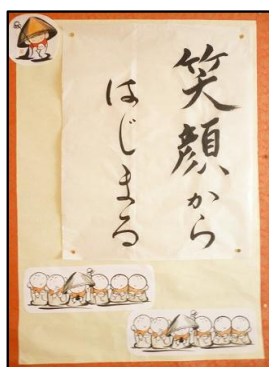 笑顔から
はじまる